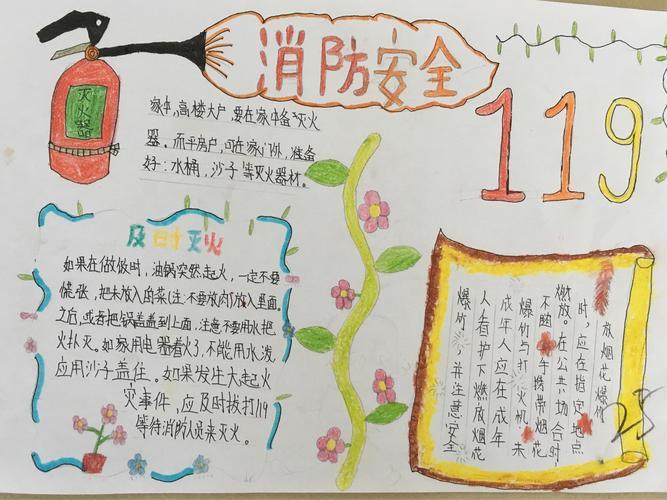 消防安全
119
灭火器
家中,高楼大户,要在家中备灭火
器。而平房户,可在家门外,准备
好:水桶,沙子等灭火器材。
及时灭火
如果在做饭时,油锅突然起火,一定不要
慌张,把未放入的菜(注:不要放肉)放入里面。
之后,或者把锅盖盖到上面,注意不要用水把
火扑灭。如家用电器着火了,不能用水泼,
应用沙子盖住。如果发生大起火
灾事件,应及时拔打119
等待消防人员来灭火。
放烟花爆竹
时,应在指定地点
燃放。在公共场合时,
不随 携带烟花
爆竹与打火机。未
成年人应在成年
人看护下燃放烟花
爆竹,并注意安全